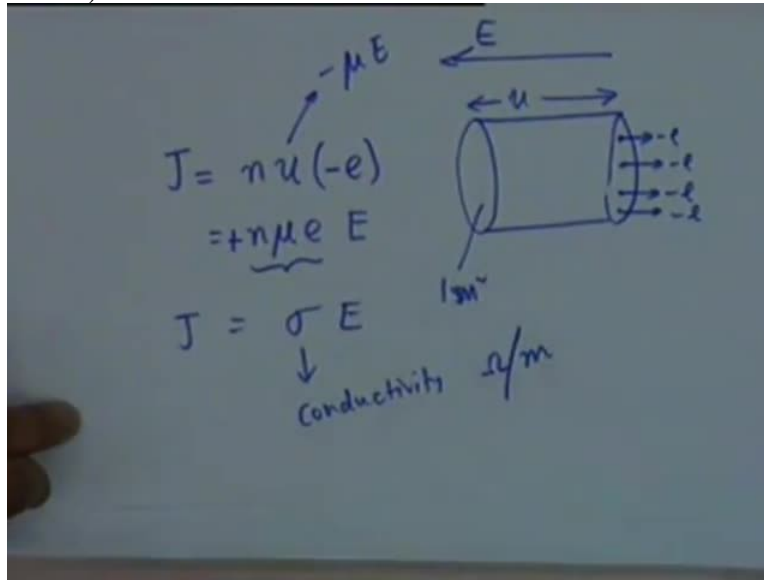 -μE
E
J = n u (-e)
← u →
-e
-e
-e
-e
= +nμe E
1m²
J = σ E
↓
conductivity Ω/m